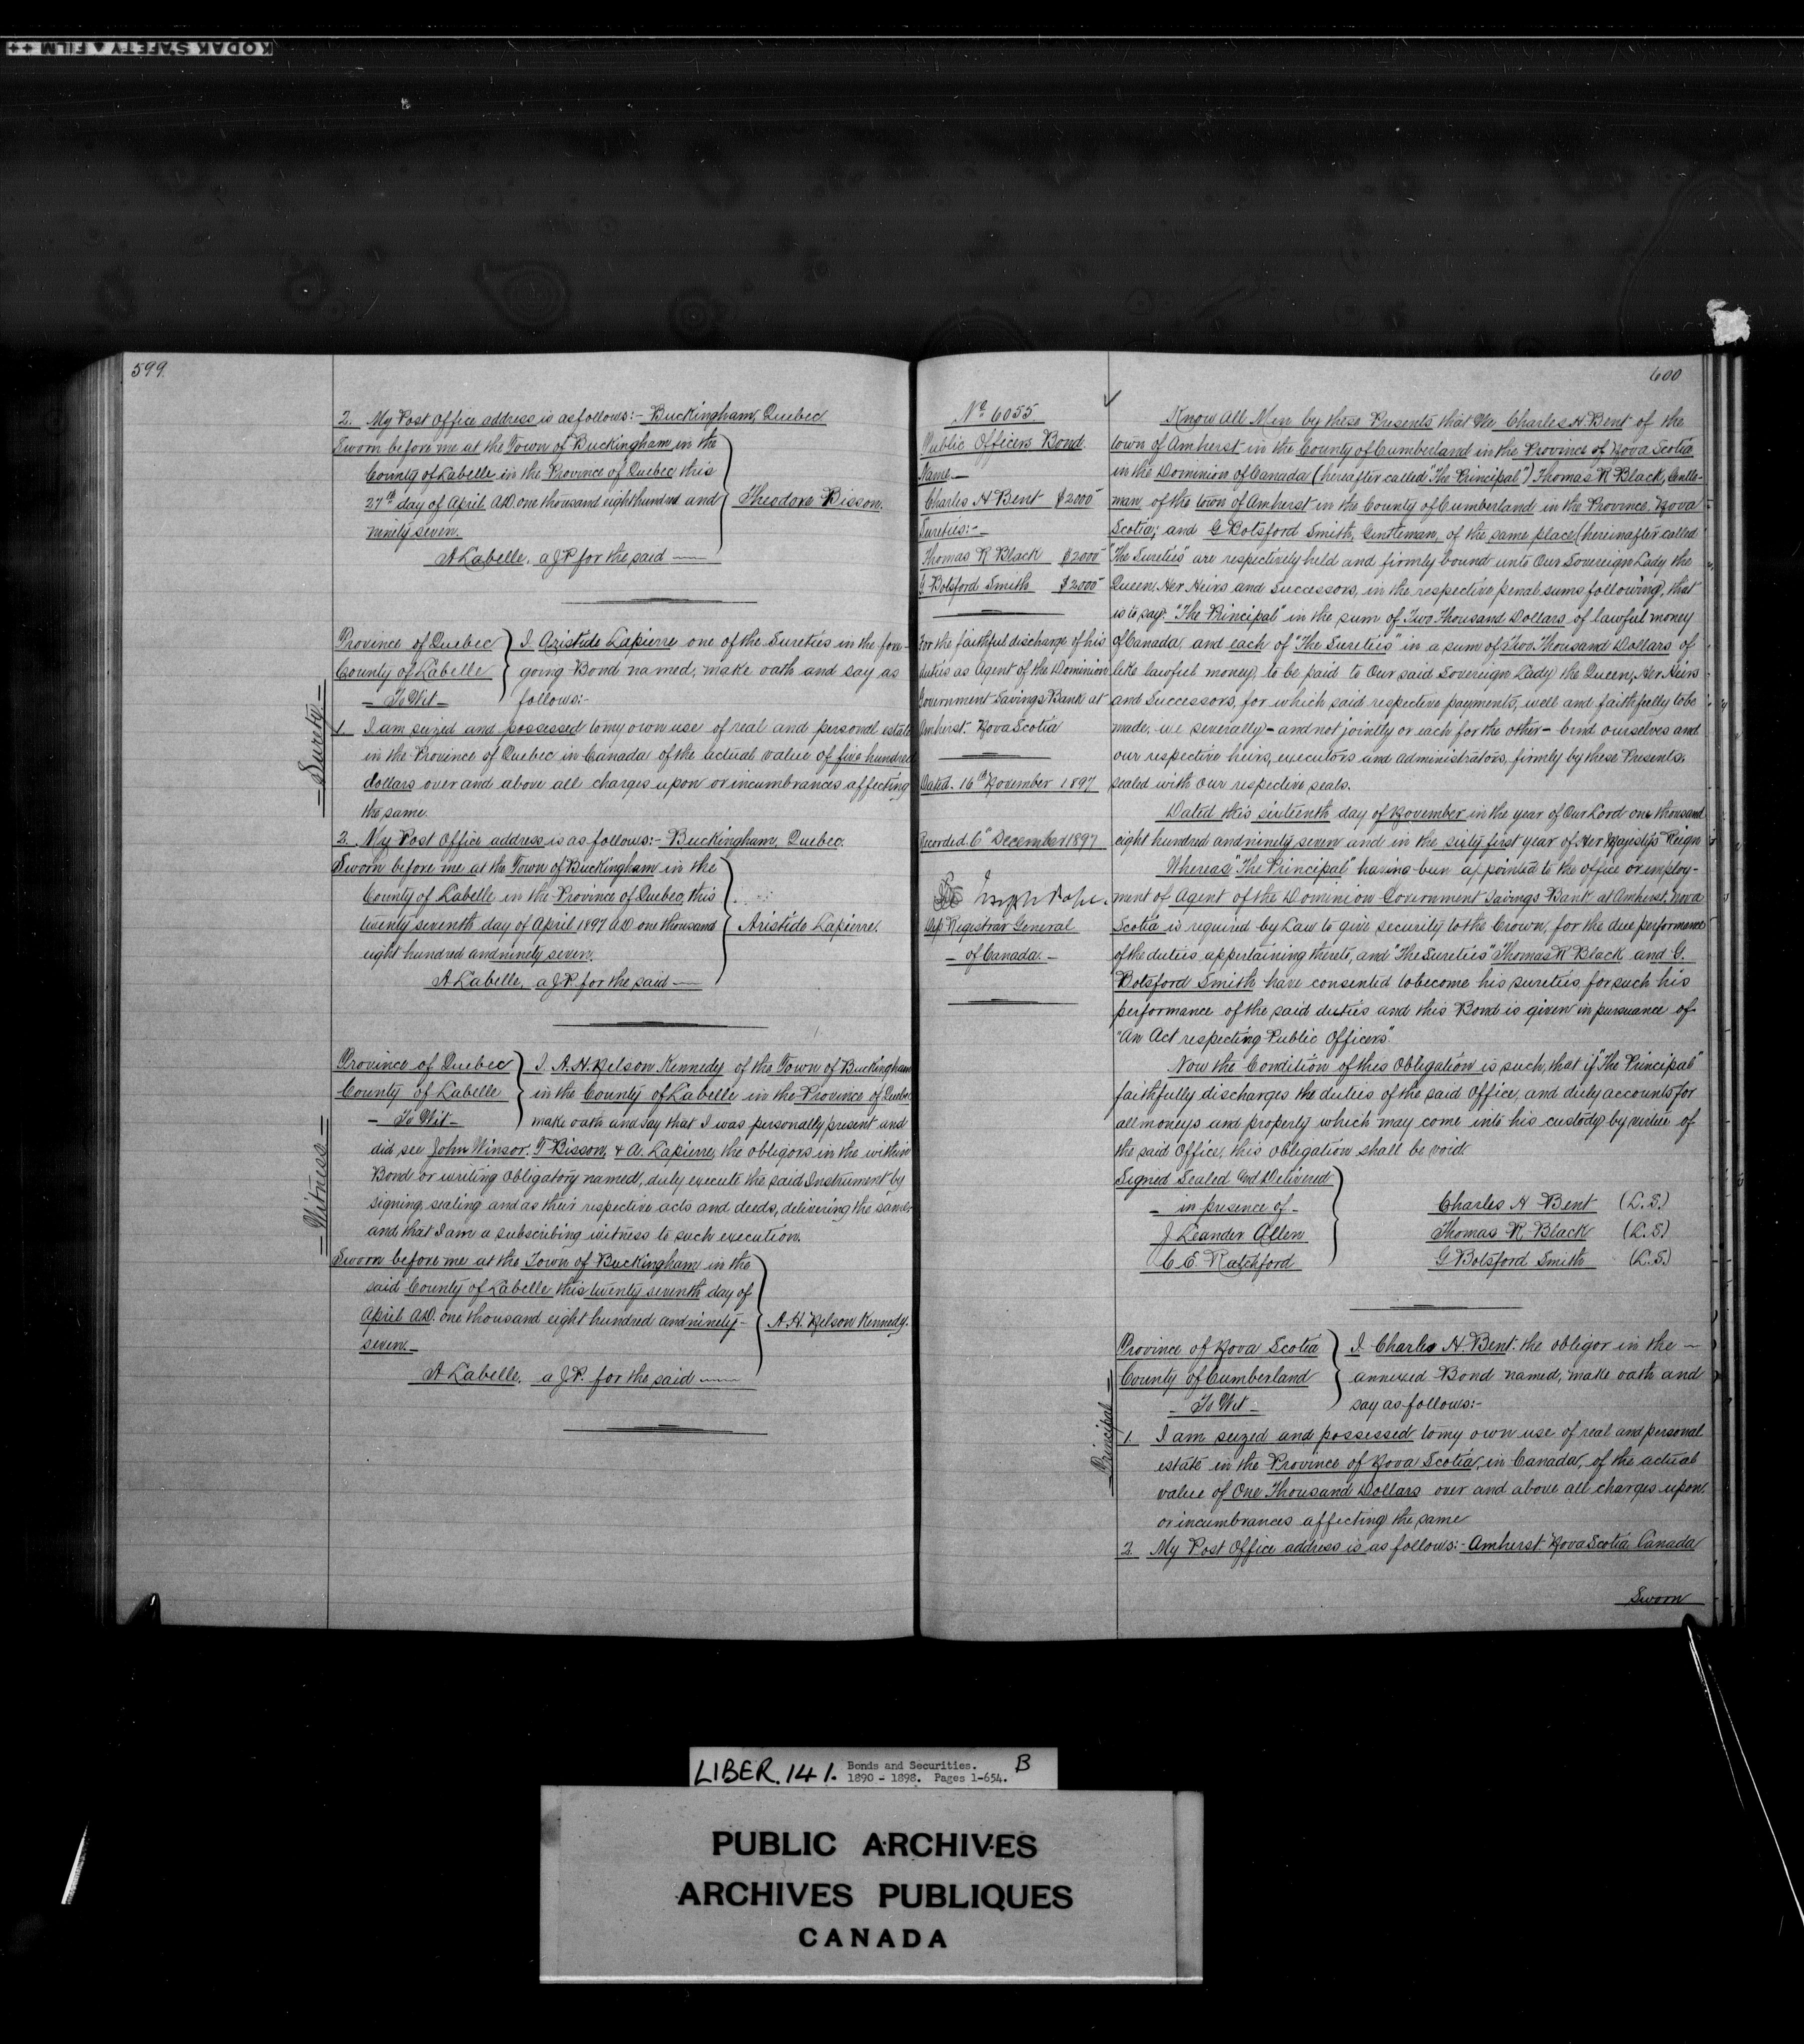 KODAK SAFETY ▲ FILM ++
599.
2. My Post Office address is as follows:- Buckingham, Quebec
Sworn before me at the Town of Buckingham in the
County of Labelle in the Province of Quebec this
27th day of April A.D. one thousand eight hundred and
ninety seven.
Theodore Bisson.
A Labelle, a J.P. for the said —
Province of Quebec
County of Labelle
- To Wit -
I Aristide Lapierre one of the Sureties in the fore-
going Bond named, make oath and say as
follows:-
= Surety =
1. I am seized and possessed to my own use of real and personal estate
in the Province of Quebec in Canada of the actual value of five hundred
dollars over and above all charges upon or incumbrances affecting
the same.
2. My Post Office address is as follows:- Buckingham, Quebec.
Sworn before me at the Town of Buckingham in the
County of Labelle in the Province of Quebec, this
twenty seventh day of April 1897 A.D. one thousand
eight hundred and ninety seven.
Aristide Lapierre.
A Labelle, a J.P. for the said —
Province of Quebec
County of Labelle
- To Wit -
I. A. H. Nelson Kennedy of the Town of Buckingham
in the County of Labelle in the Province of Quebec
make oath and say that I was personally present and
= Witness =
did see John Winsor, T Bisson, & A. Lapierre, the obligors in the within
Bond or writing obligatory named, duly execute the said Instrument by
signing, sealing and as their respective acts and deeds, delivering the same
and that I am a subscribing witness to such execution.
Sworn before me at the Town of Buckingham in the
said County of Labelle this twenty seventh day of
April A.D. one thousand eight hundred and ninety-
seven.-
A. H. Nelson Kennedy.
A Labelle, a J.P. for the said —
600
No 6055
Public Officers Bond.
Name -
Charles H Bent $2000
Sureties:-
Thomas R Black $2000
G Botsford Smith $2000
For the faithful discharge of his
duties as Agent of the Dominion
Government Savings Bank at
Amherst. Nova Scotia
Dated. 16th November 1897
Recorded. 6th December 1897
Joseph Pope.
Dep Registrar General
- of Canada. -
Know All Men by these Presents that We Charles H. Bent of the
town of Amherst in the County of Cumberland in the Province of Nova Scotia
in the Dominion of Canada (hereafter called "The Principal") Thomas R Black, Gentle-
man of the town of Amherst in the County of Cumberland in the Province, Nova
Scotia; and G Botsford Smith, Gentleman, of the same place (hereinafter called
"The Sureties" are respectively held and firmly bound unto Our Sovereign Lady the
Queen, Her Heirs and Successors, in the respective penal sums following, that
is to say: "The Principal" in the sum of Two Thousand Dollars of lawful money
of Canada, and each of "The Sureties" in a sum of Two Thousand Dollars of
like lawful money, to be paid to Our said Sovereign Lady the Queen, Her Heirs
and Successors, for which said respective payments, well and faithfully to be
made, we severally - and not jointly or each for the other - bind ourselves and
our respective heirs, executors and administrators, firmly by these Presents,
sealed with our respective seals.
Dated this sixteenth day of November in the year of Our Lord one thousand
eight hundred and ninety seven and in the sixty first year of Her Majesty's Reign
Whereas "The Principal" having been appointed to the office or employ-
ment of Agent of the Dominion Government Savings Bank at Amherst, Nova
Scotia is required by Law to give security to the Crown, for the due performance
of the duties appertaining thereto, and "The Sureties" Thomas R Black and G.
Botsford Smith have consented to become his sureties, for such his
performance of the said duties and this Bond is given in pursuance of
"An Act respecting Public Officers"
Now the Condition of this Obligation is such, that if "The Principal"
faithfully discharges the duties of the said Office, and duly accounts for
all moneys and property which may come into his custody by virtue of
the said Office, this obligation shall be void.
Signed Sealed and Delivered
- in presence of -
J Leander Allen
C E Ratchford
Charles H Bent (L.S)
Thomas R Black (L.S)
G Botsford Smith (L.S)
Province of Nova Scotia
County of Cumberland
- To Wit -
I. Charles H. Bent. the obligor in the —
annexed Bond named, make oath and
say as follows:-
= Principal =
1. I am seized and possessed to my own use of real and personal
estate in the Province of Nova Scotia, in Canada, of the actual
value of One Thousand Dollars over and above all charges upon,
or incumbrances affecting the same
2. My Post Office address is as follows:- Amherst Nova Scotia Canada
Sworn
LIBER. 141. Bonds and Securities. B
1890 - 1898. Pages 1-654.
PUBLIC ARCHIVES
ARCHIVES PUBLIQUES
CANADA